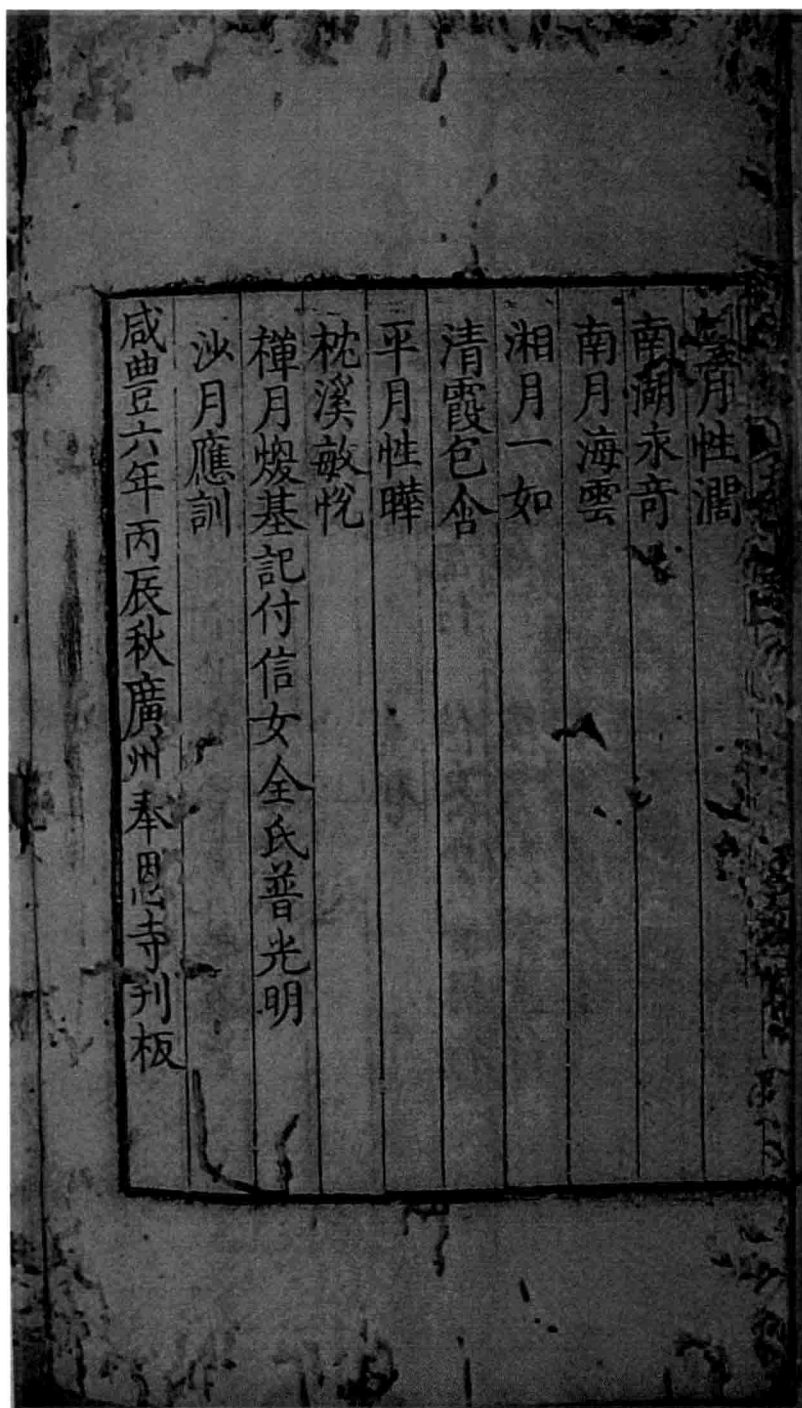 月性濶
南湖永奇
南月海雲
湘月一如
清霞包含
平月性曄
枕溪敏悅
樺月煅基記付信女全氏普光明
沙月應訓
咸豊六年丙辰秋廣州奉恩寺刋板